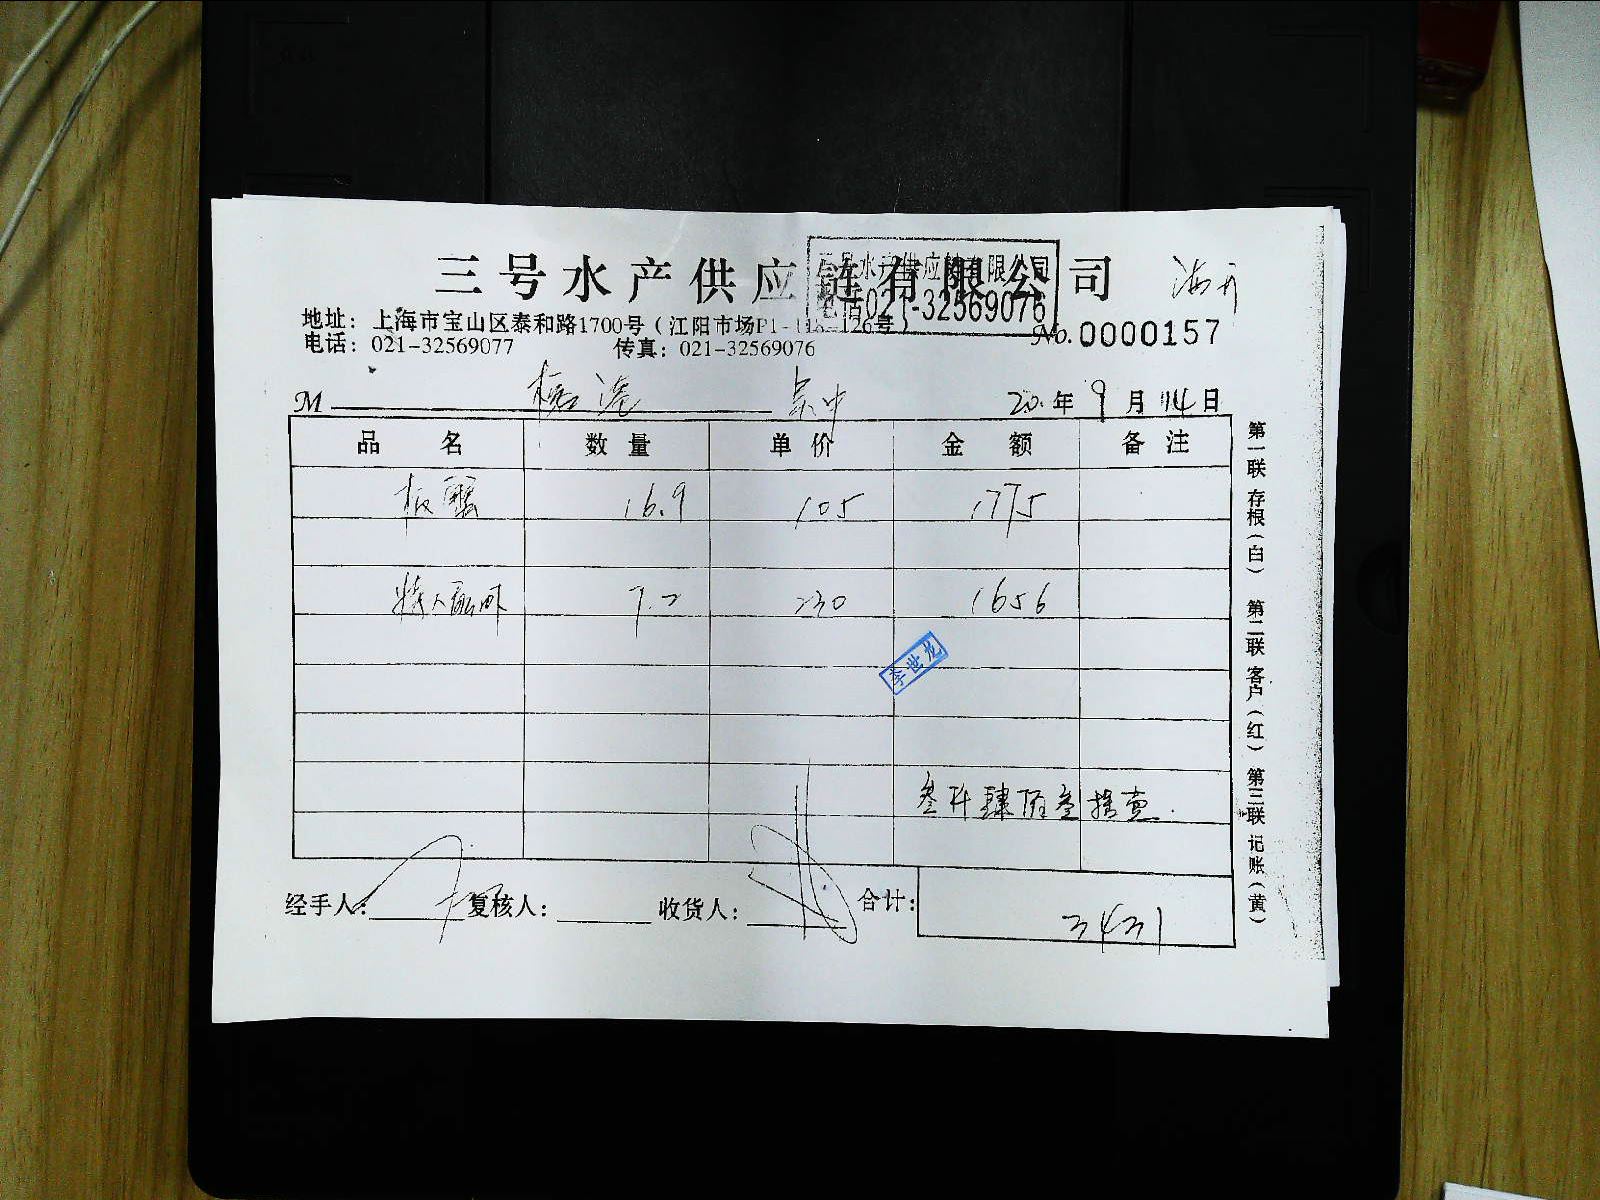 三号水产供应链有限公司
三号水产供应链有限公司
电话021-32569076
地址：上海市宝山区泰和路1700号（江阳市场P1-118-126号）
电话：021-32569077 传真：021-32569076
No.0000157
M 吴中 20.年9月14日
品名 数量 单价 金额 备注
板蟹 16.9 105 1775
7.2 230 1656
李世龙
叁仟肆佰叁拾壹
经手人： 复核人： 收货人： 合计：3431
第一联 存根（白） 第二联 客户（红） 第三联 记账（黄）